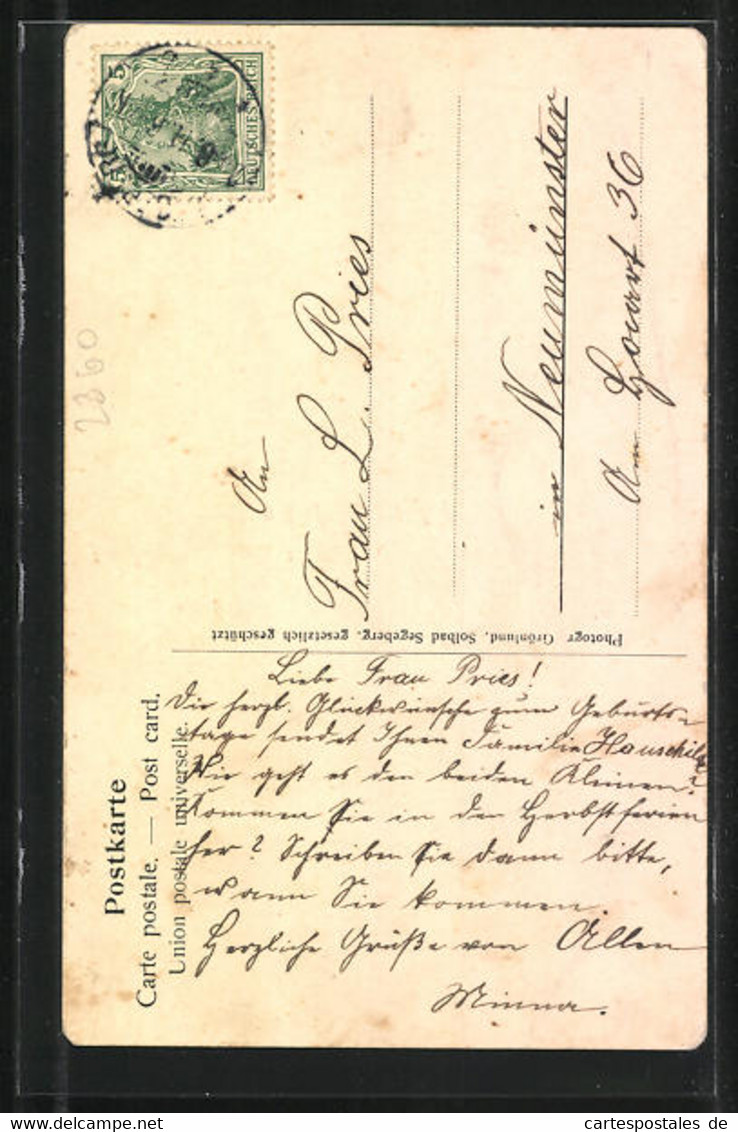 Postkarte
Carte postale. — Post card.
Union postale universelle.
5 5
DEUTSCHES REICH
2860
An
Frau L. Pries
in Neumünster
Am Haart 36
Photogr Grönlund, Solbad Segeberg, gesetzlich geschützt
Liebe Frau Pries!
Die herzl. Glückwünsche zum Geburts-
tage sendet Ihnen Familie Hauschild
Wie geht es den beiden Kleinen?
Kommen Sie in den Herbstferien
her? Schreiben Sie dann bitte,
wann Sie kommen.
Herzliche Grüße von Allen
Minna.
cartespostales de